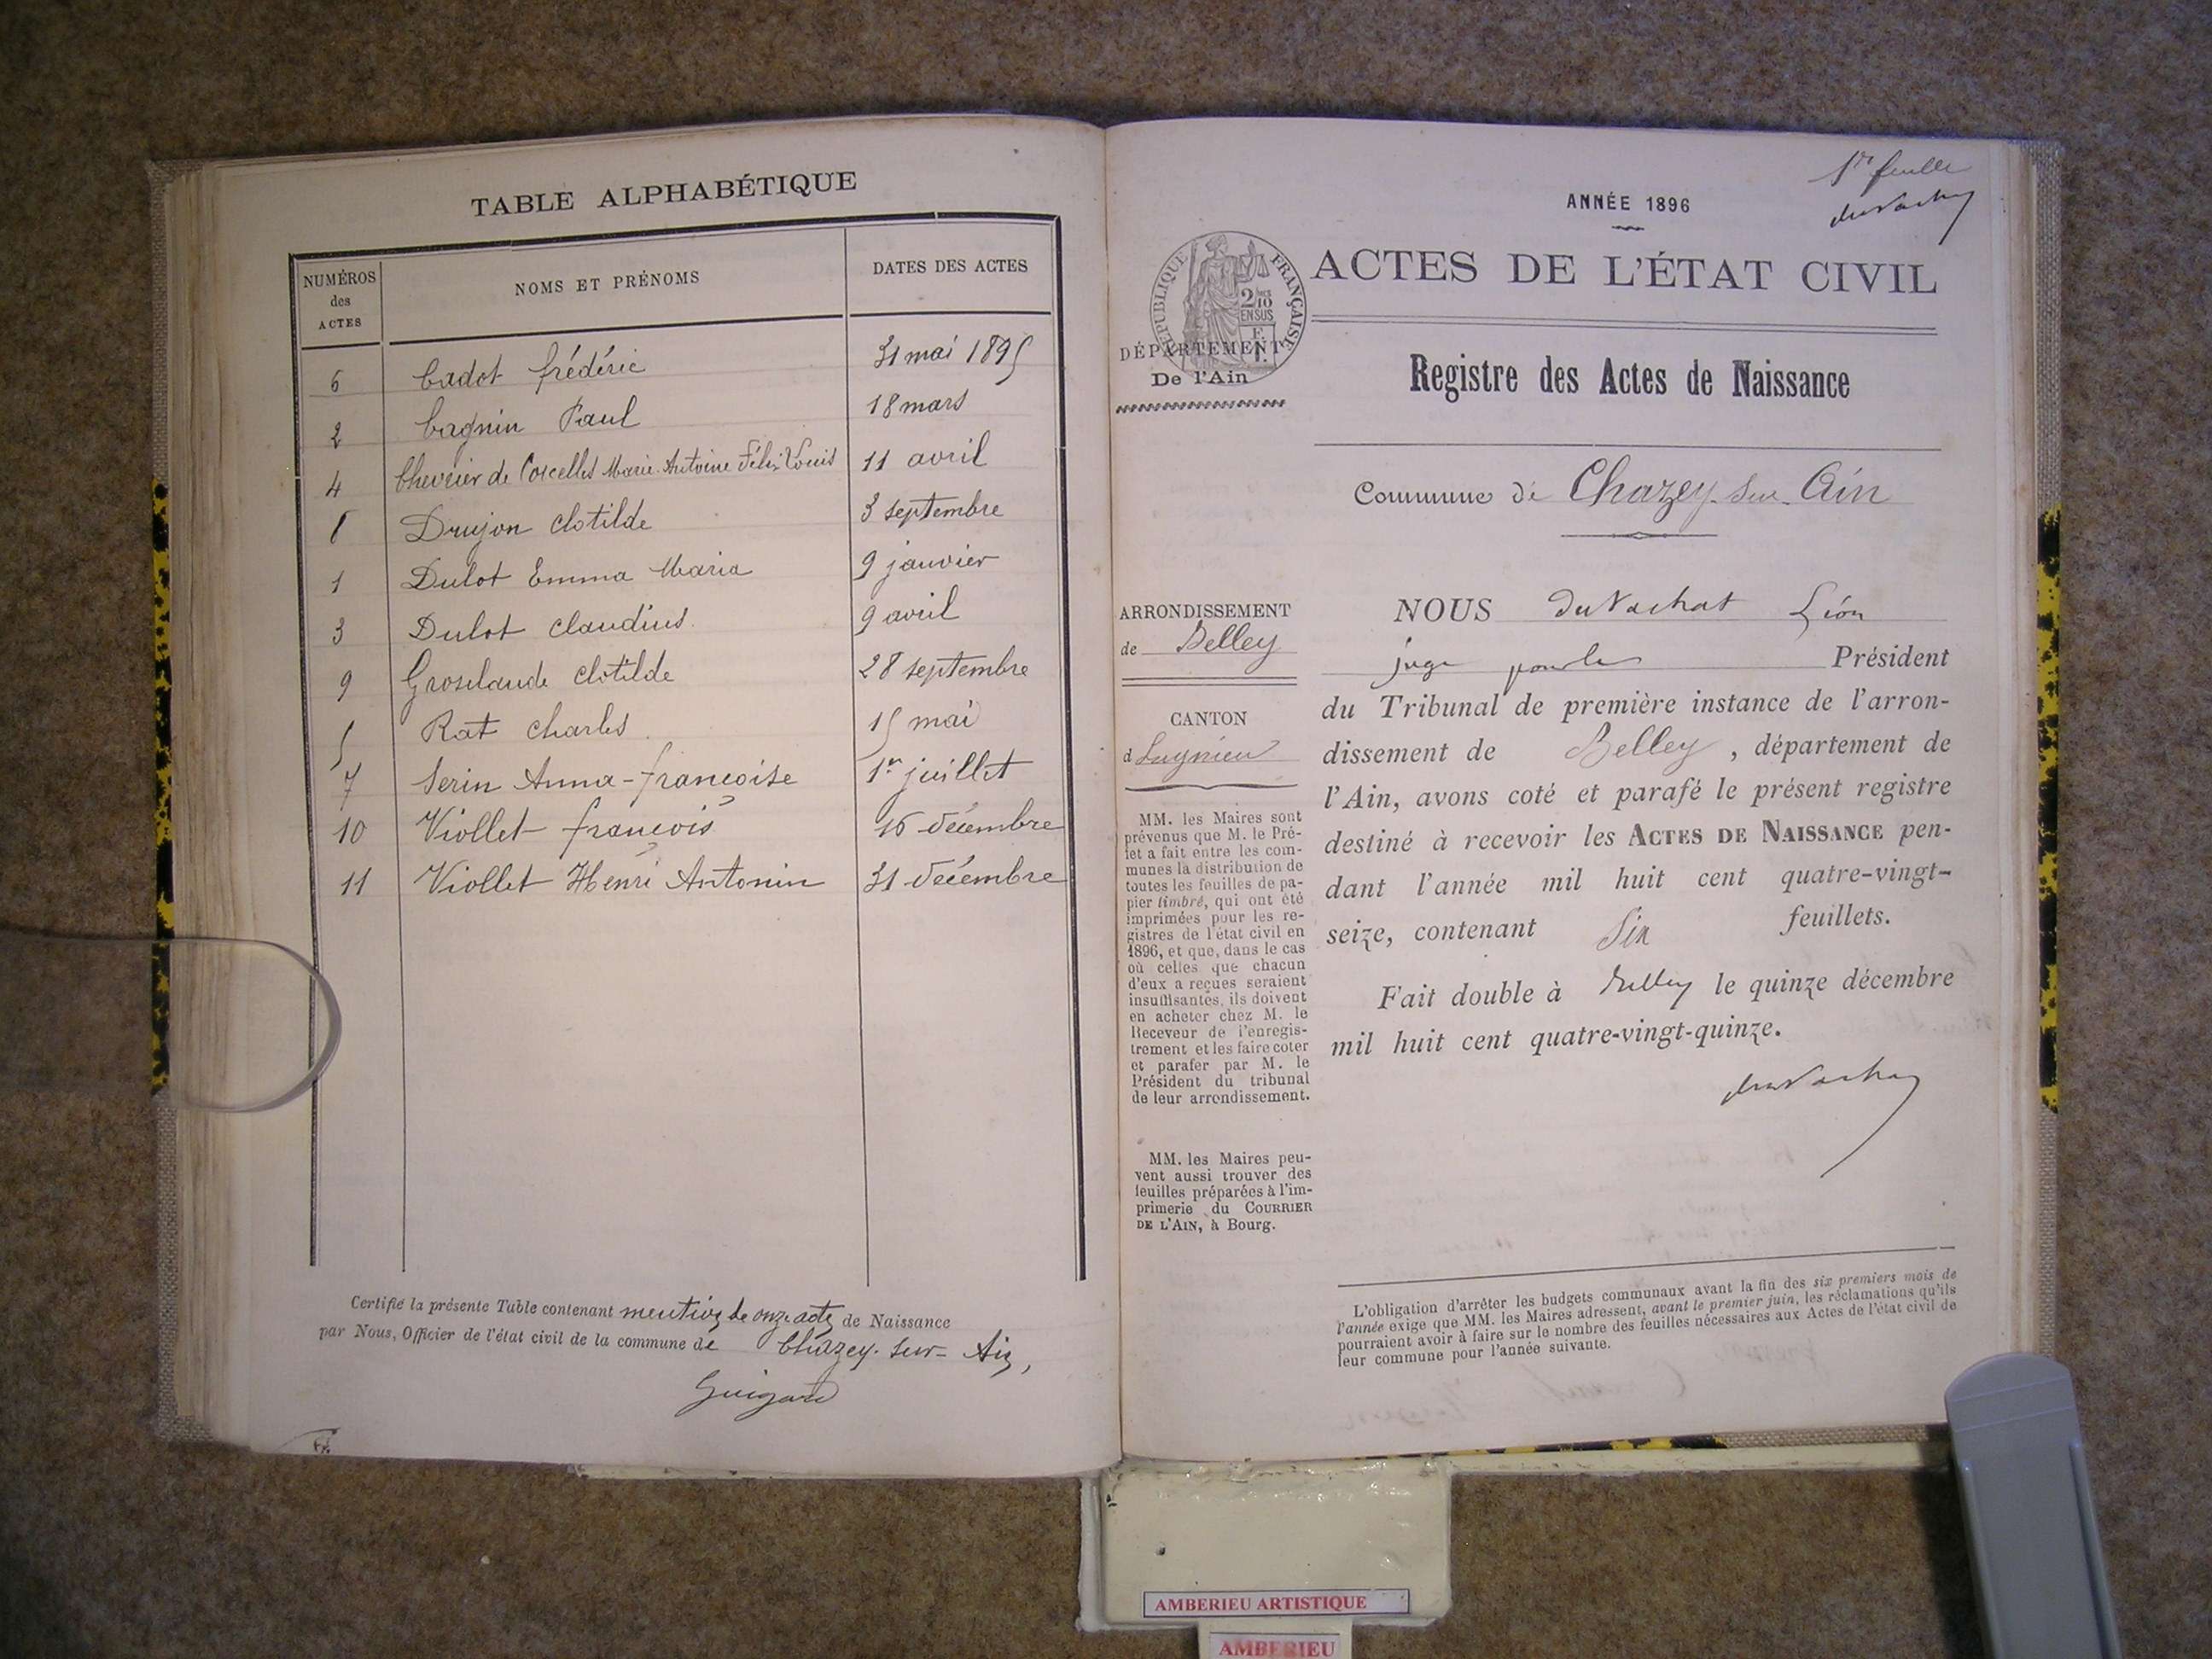 TABLE ALPHABÉTIQUE
NUMÉROS des ACTES NOMS ET PRÉNOMS DATES DES ACTES
6 Cadot frédéric 31 mai 1895
2 Cagnin Paul 18 mars
4 Chevrier de Corcelles Marie Antoine Félix Louis 11 avril
8 Drujon Clotilde 3 septembre
1 Dulot Emma Maria 9 janvier
3 Dulot Claudius. 9 avril
9 Groslaude Clotilde 28 septembre
5 Rat Charles 15 mai
7 Serin Anna-francoise 1er juillet
10 Viollet françois 16 décembre
11 Viollet Henri Antonin 31 décembre
Certifié la présente Table contenant mention de onze actes de Naissance
par Nous, Officier de l'état civil de la commune de Chazey-sur-Ain,
Guigard
1re feuille
duVachat
ANNÉE 1896
RÉPUBLIQUE FRANÇAISE
2/10 EN SUS
ACTES DE L'ÉTAT CIVIL
DÉPARTEMENT
De l'Ain
Registre des Actes de Naissance
Commune de Chazey-sur-Ain
ARRONDISSEMENT
de Belley
CANTON
d Lagnieu
MM. les Maires sont
prévenus que M. le Pré-
fet a fait entre les com-
munes la distribution de
toutes les feuilles de pa-
pier timbré, qui ont été
imprimées pour les re-
gistres de l'état civil en
1896, et que, dans le cas
où celles que chacun
d'eux a reçues seraient
insuffisantes, ils doivent
en acheter chez M. le
Receveur de l'enregis-
trement et les faire coter
et parafer par M. le
Président du tribunal
de leur arrondissement.
MM. les Maires peu-
vent aussi trouver des
feuilles préparées à l'im-
primerie du COURRIER
DE L'AIN, à Bourg.
NOUS duVachat Léon
juge pour le Président
du Tribunal de première instance de l'arron-
dissement de Belley, département de
l'Ain, avons coté et parafé le présent registre
destiné à recevoir les ACTES DE NAISSANCE pen-
dant l'année mil huit cent quatre-vingt-
seize, contenant Six feuillets.
Fait double à Belley le quinze décembre
mil huit cent quatre-vingt-quinze.
duVachat
L'obligation d'arrêter les budgets communaux avant la fin des six premiers mois de
l'année exige que MM. les Maires adressent, avant le premier juin, les réclamations qu'ils
pourraient avoir à faire sur le nombre des feuilles nécessaires aux Actes de l'état civil de
leur commune pour l'année suivante.
AMBERIEU ARTISTIQUE
AMBERIEU